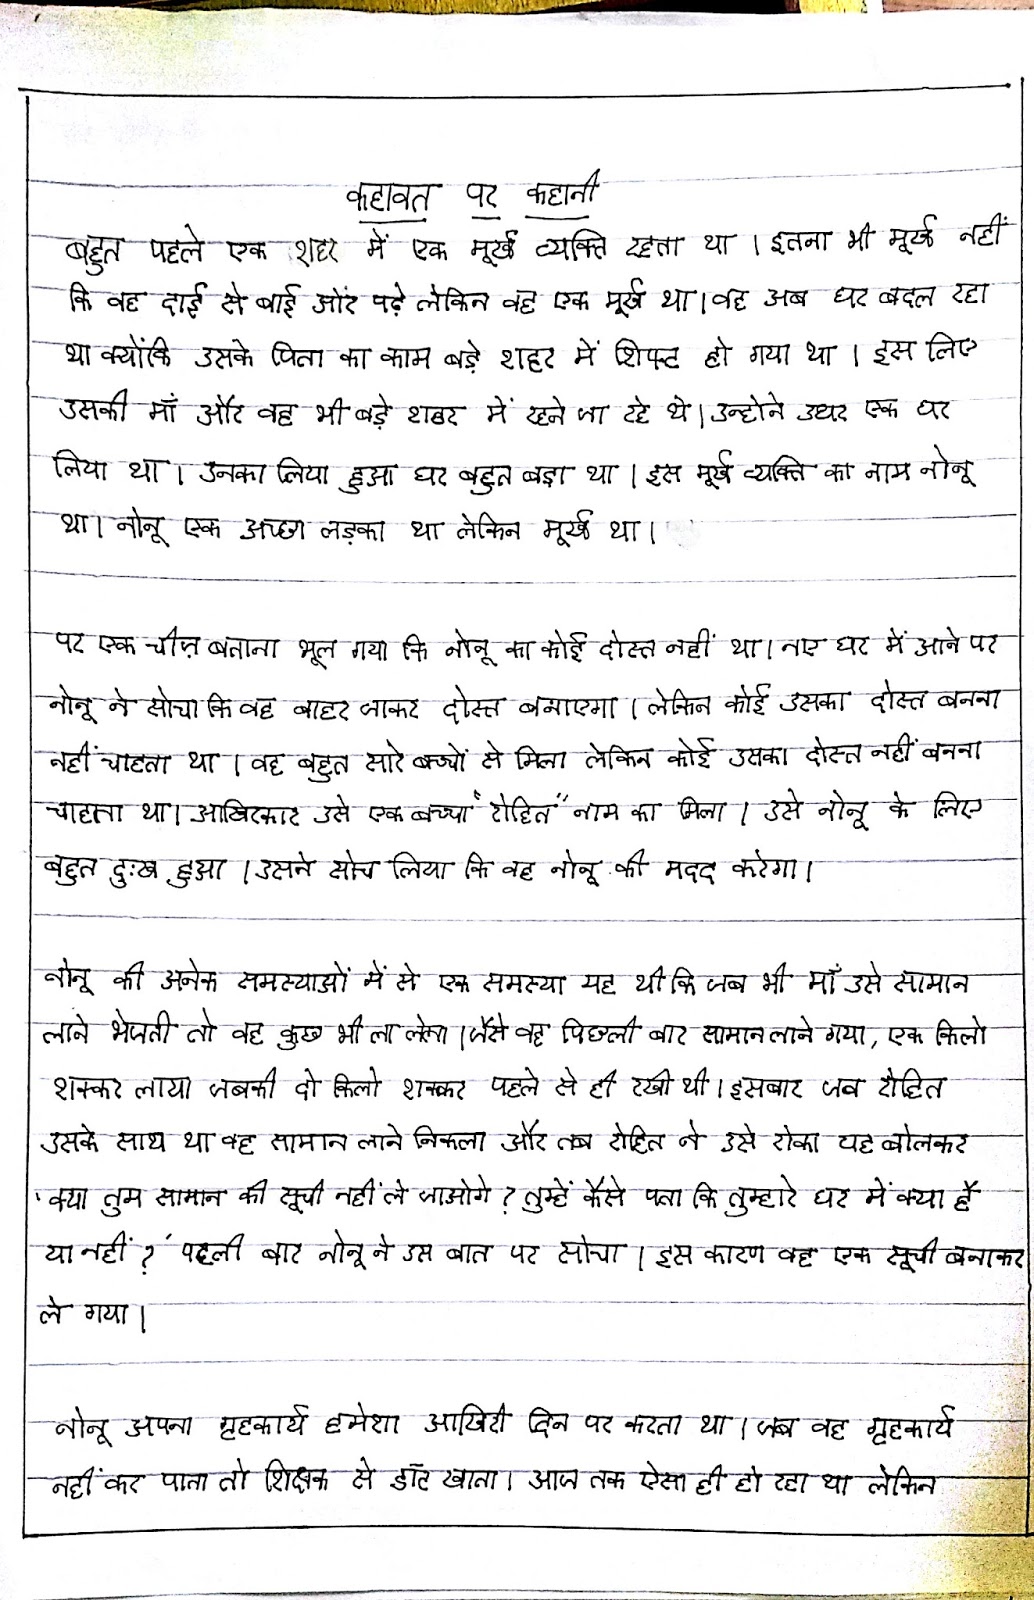 कहावत पर कहानी
बहुत पहले एक शहर में एक मूर्ख व्यक्ति रहता था । इतना भी मूर्ख नहीं
कि वह दाई से बाई ओर पढ़े लेकिन वह एक मूर्ख था। वह अब घर बदल रहा
था क्योंकि उसके पिता का काम बड़े शहर में शिफ्ट हो गया था । इस लिए
उसकी माँ और वह भी बड़े शहर में रहने जा रहे थे। उन्होने उधर एक घर
लिया था । उनका लिया हुआ घर बहुत बड़ा था । इस मूर्ख व्यक्ति का नाम नोनू
था। नोनू एक अच्छा लड़का था लेकिन मूर्ख था ।
पर एक चीज़ बताना भूल गया कि नोनू का कोई दोस्त नहीं था। नए घर में आने पर
नोनू ने सोचा कि वह बाहर जाकर दोस्त बनाएगा । लेकिन कोई उसका दोस्त बनना
नहीं चाहता था । वह बहुत सारे बच्चों से मिला लेकिन कोई उसका दोस्त नहीं बनना
चाहता था। आखिरकार उसे एक बच्चा "रोहित" नाम का मिला । उसे नोनू के लिए
बहुत दुःख हुआ । उसने सोच लिया कि वह नोनू की मदद करेगा।
नोनू की अनेक समस्याओं में से एक समस्या यह थी कि जब भी माँ उसे सामान
लाने भेजती तो वह कुछ भी ला लेता । जैसे वह पिछली बार सामान लाने गया, एक किलो
शक्कर लाया जबकी दो किलो शक्कर पहले से ही रखी थी। इसबार जब रोहित
उसके साथ था वह सामान लाने निकला और तब रोहित ने उसे रोका यह बोलकर
'क्या तुम सामान की सूची नहीं ले जाओगे ? तुम्हें कैसे पता कि तुम्हारे घर में क्या है
या नहीं ?' पहली बार नोनू ने उस बात पर सोचा । इस कारण वह एक सूची बनाकर
ले गया।
नोनू अपना गृहकार्य हमेशा आखिरी दिन पर करता था । जब वह गृहकार्य
नहीं कर पाता तो शिक्षक से डाँट खाता। आज तक ऐसा ही हो रहा था लेकिन